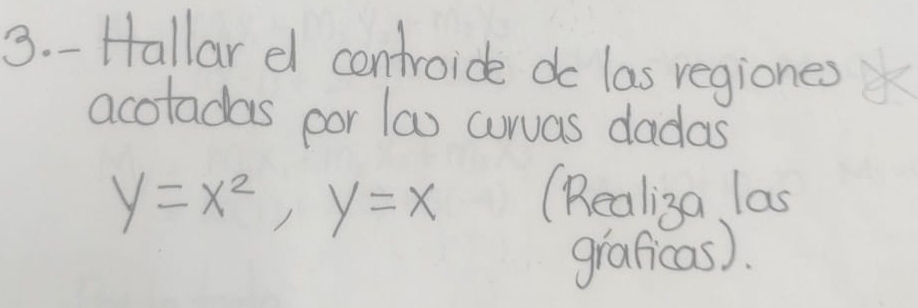 3.- Hallar el centroide de las regiones
acotadas por las curvas dadas
y = x², y = x (Realiza las
gráficas).